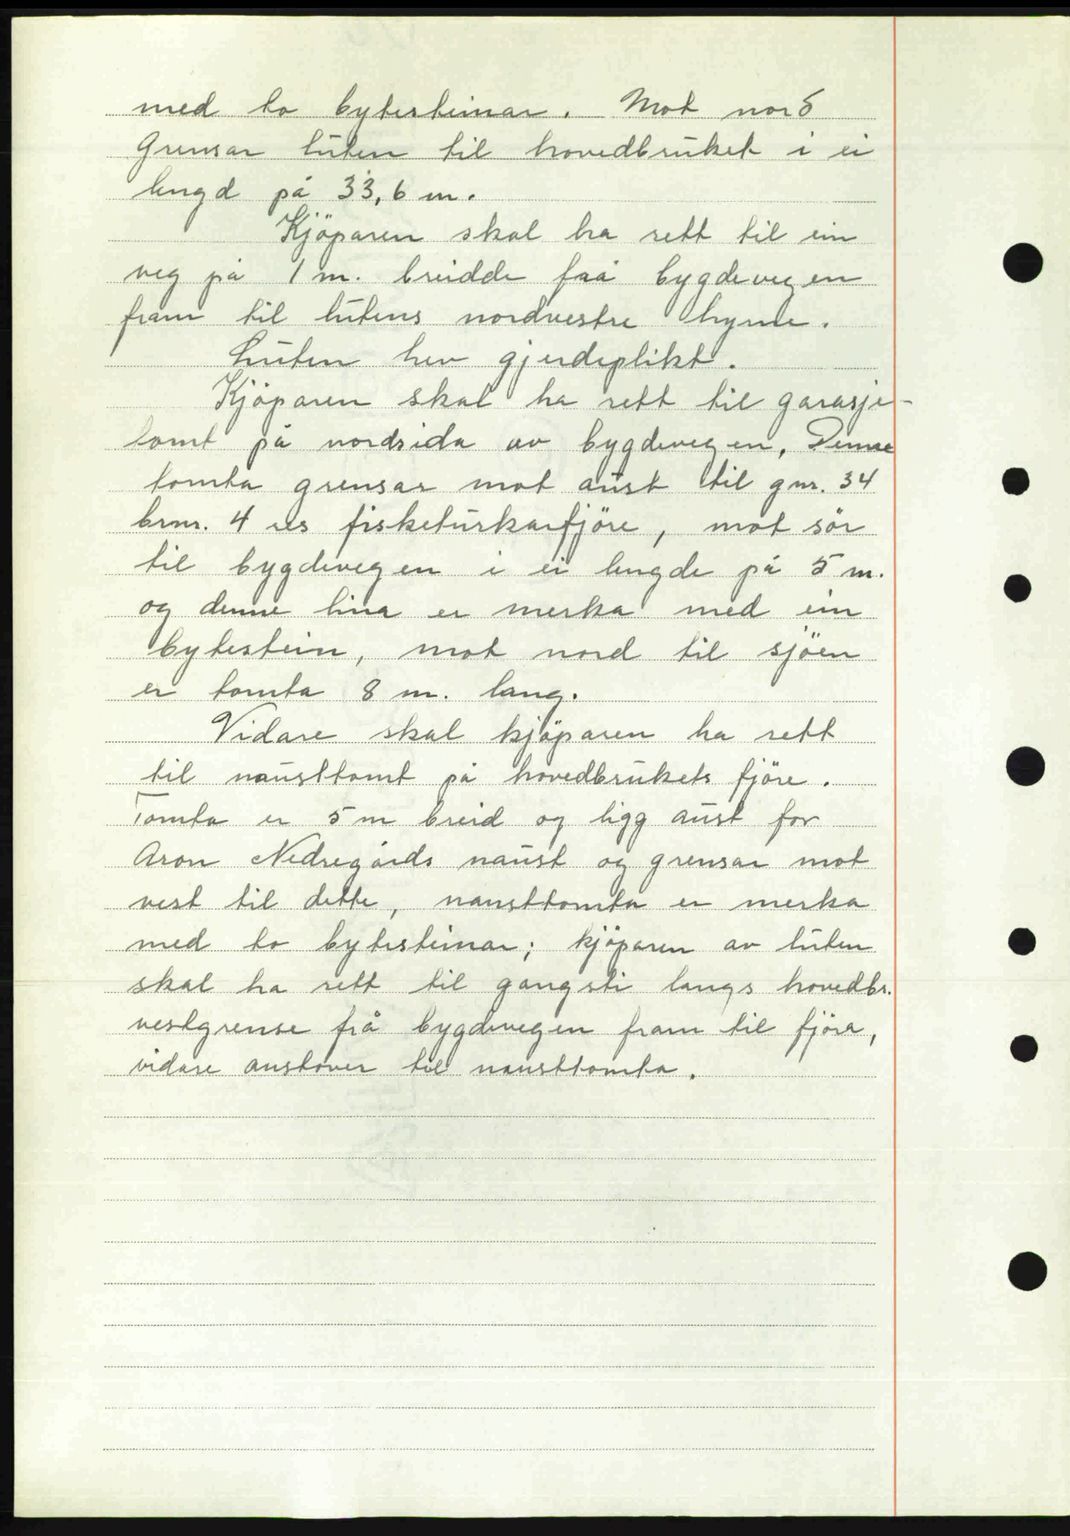 med to bytesteinar. Mot nord
grensar luten til hovedbruket i ei
lengd på 33,6 m.
Kjöparen skal ha rett til ein
veg på 1 m. breidde frå bygdevegen
fram til lutens nordvestre hyrne.
Luten hev gjerdeplikt.
Kjöparen skal ha rett til garasje-
tomt på nordsida av bygdevegen, Denne
tomta grensar mot aust til gnr. 34
brnr. 4 es fisketurkarfjöre, mot sör
til bygdevegen i ei lengde på 5 m.
og denne lina er merka med ein
bytestein, mot nord til sjöen
er tomta 8 m. lang.
Vidare skal kjöparen ha rett
til nausttomt på hovedbrukets fjöre.
Tomta er 5 m breid og ligg aust for
Aron Nedregårds naust og grensar mot
vest til dette, nausttomta er merka
med to bytesteinar; kjöparen av luten
skal ha rett til gangsti langs hovedbr.
vestgrense frå bygdevegen fram til fjöra,
vidare austover til nausttomta.